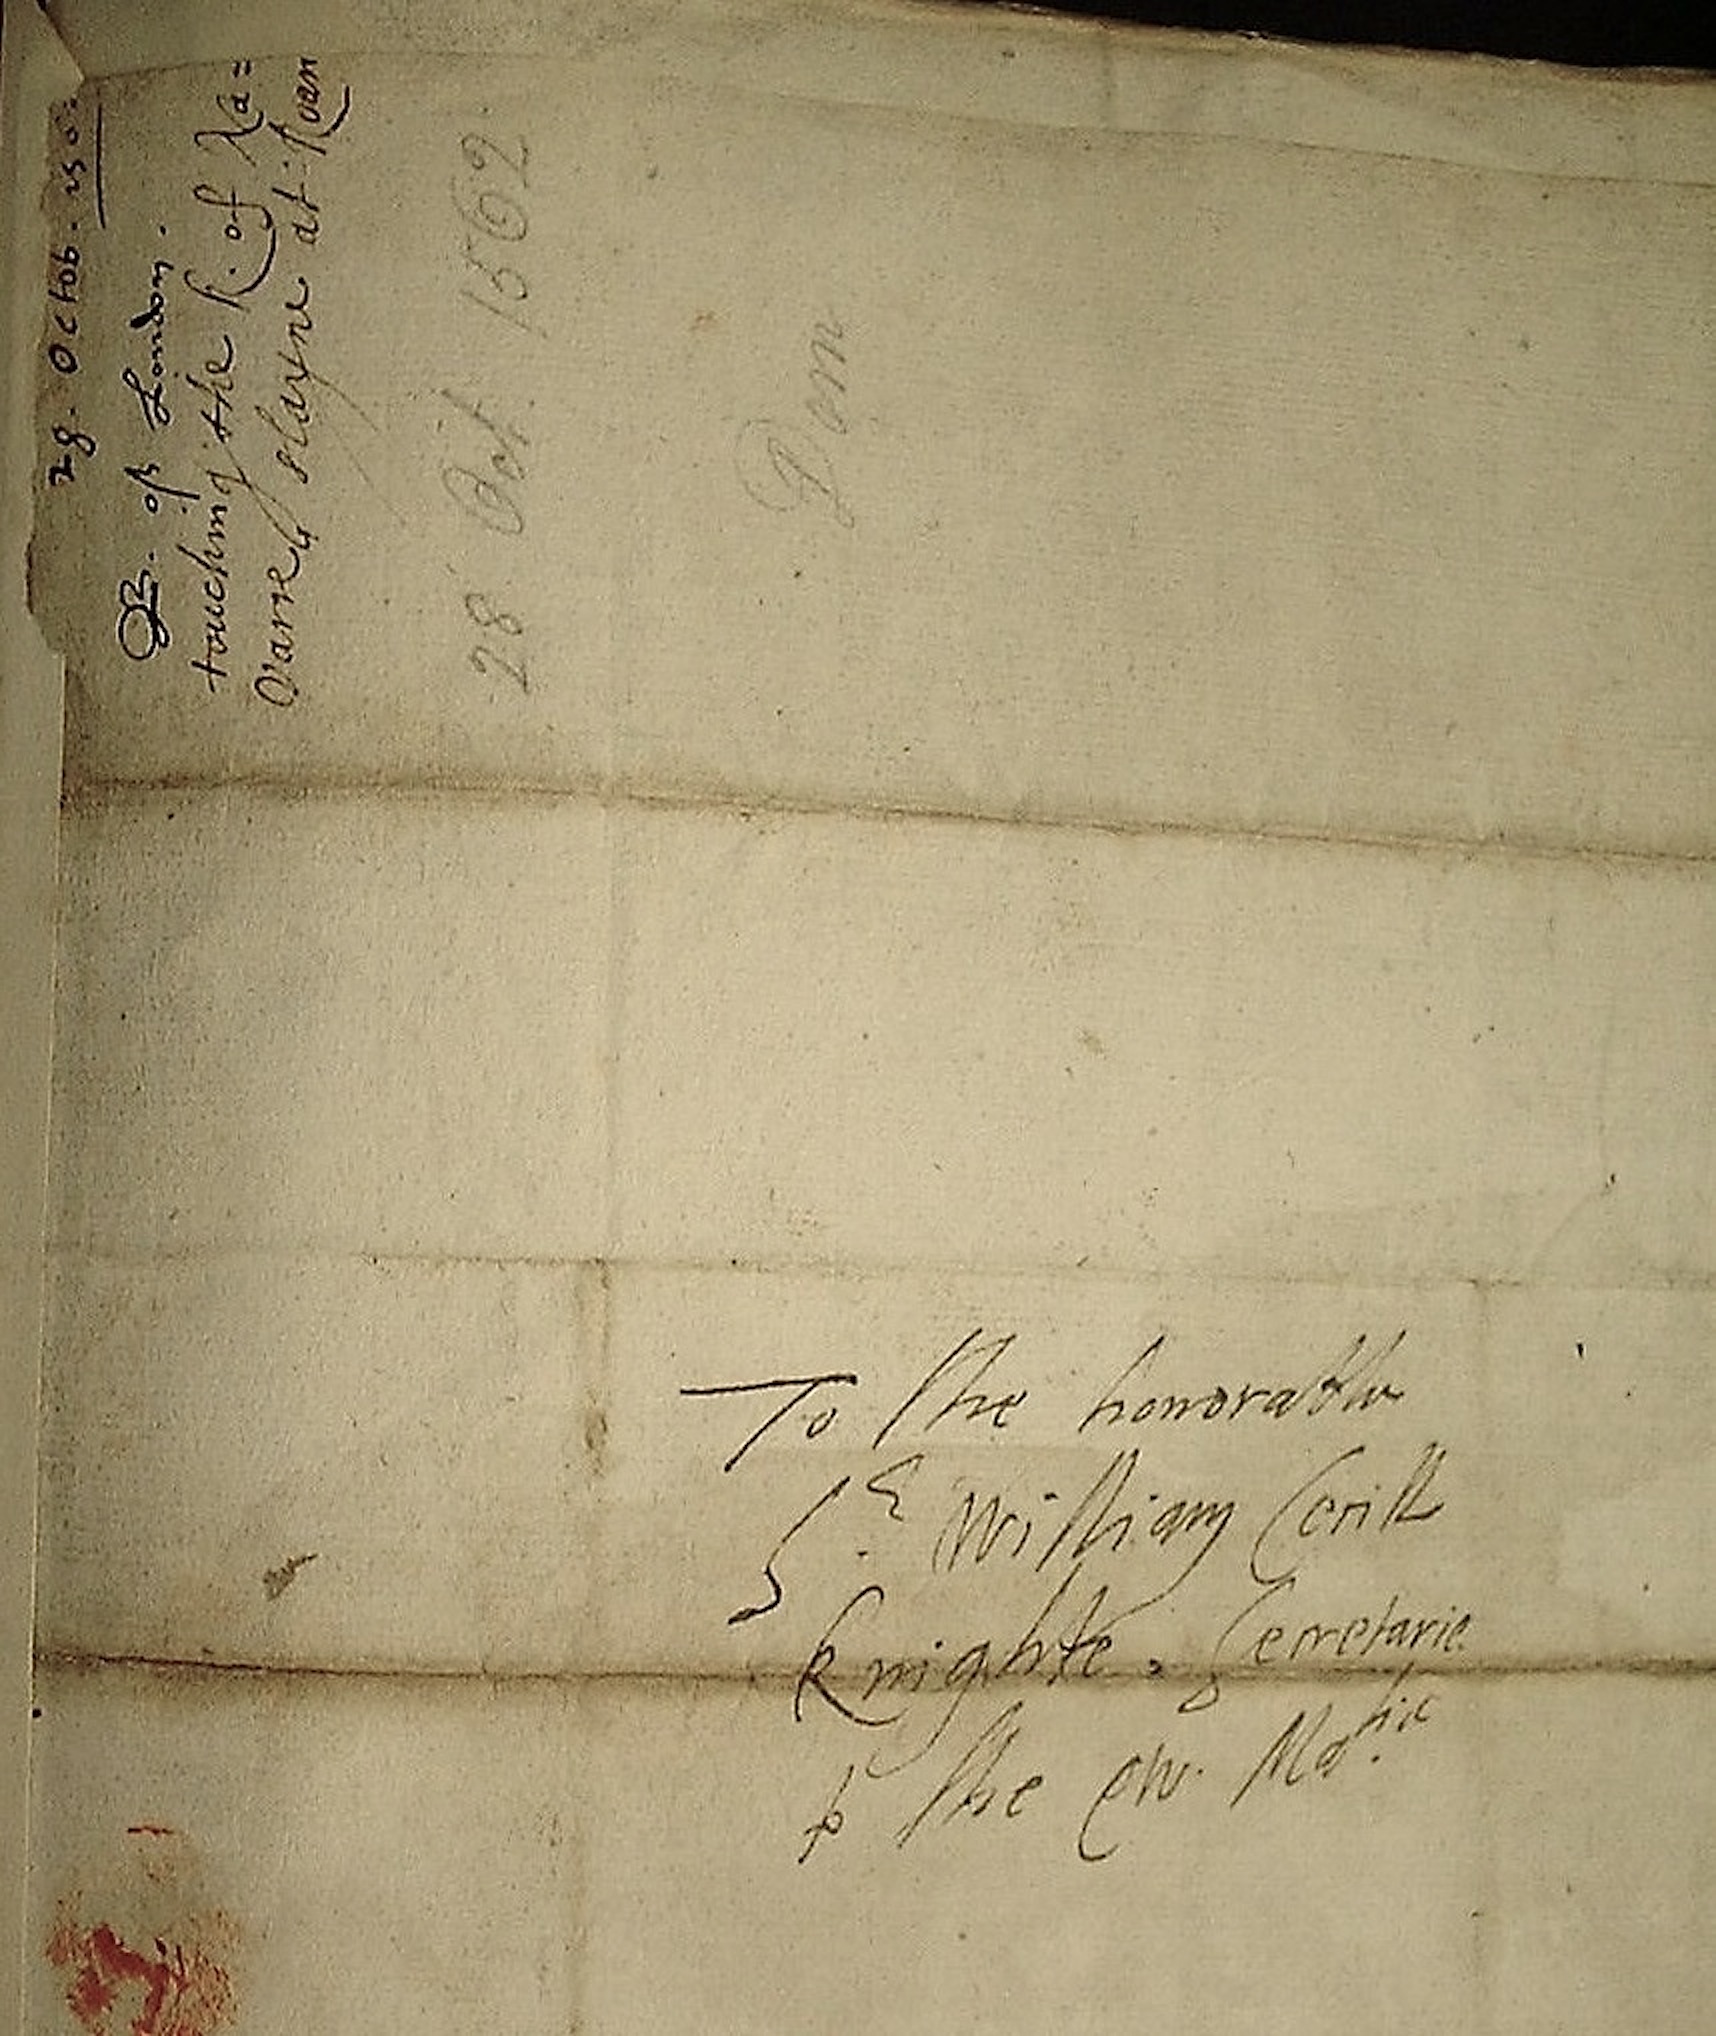 28. Octob.
B. of London.
touching the K. of Na=
varre slayne at Roan
28 Oct. 1562
Dom
To the honorable
Sr William Cecill
Knighte. Secretarie
to the Qw. Matie.